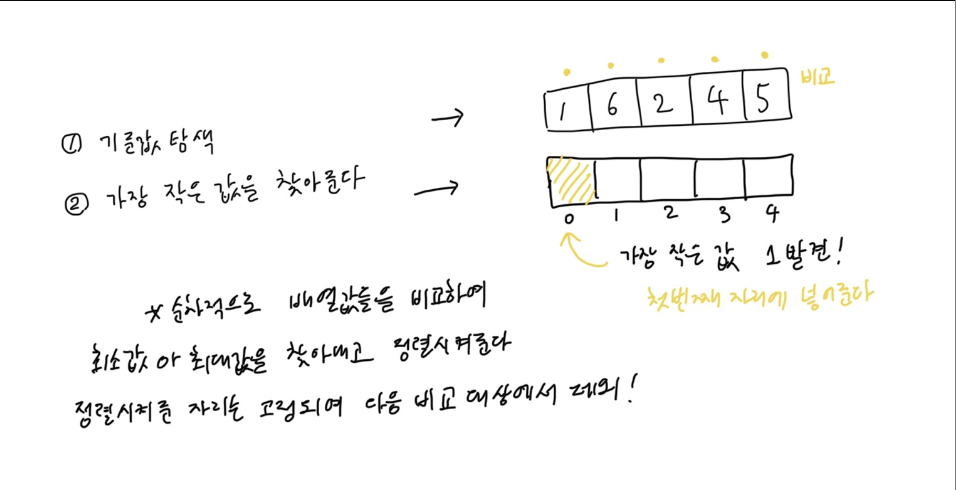 ① 기준값 탐색
→
1 6 2 4 5
비교
② 가장 작은 값을 찾아준다
→
0 1 2 3 4
가장 작은 값 1 발견!
첫번째 자리에 넣어준다
* 순차적으로 배열값들을 비교하여
최소값 아 최대값을 찾아내고 정렬시켜준다
정렬시켜준 자리는 고정되며 다음 비교 대상에서 제외!